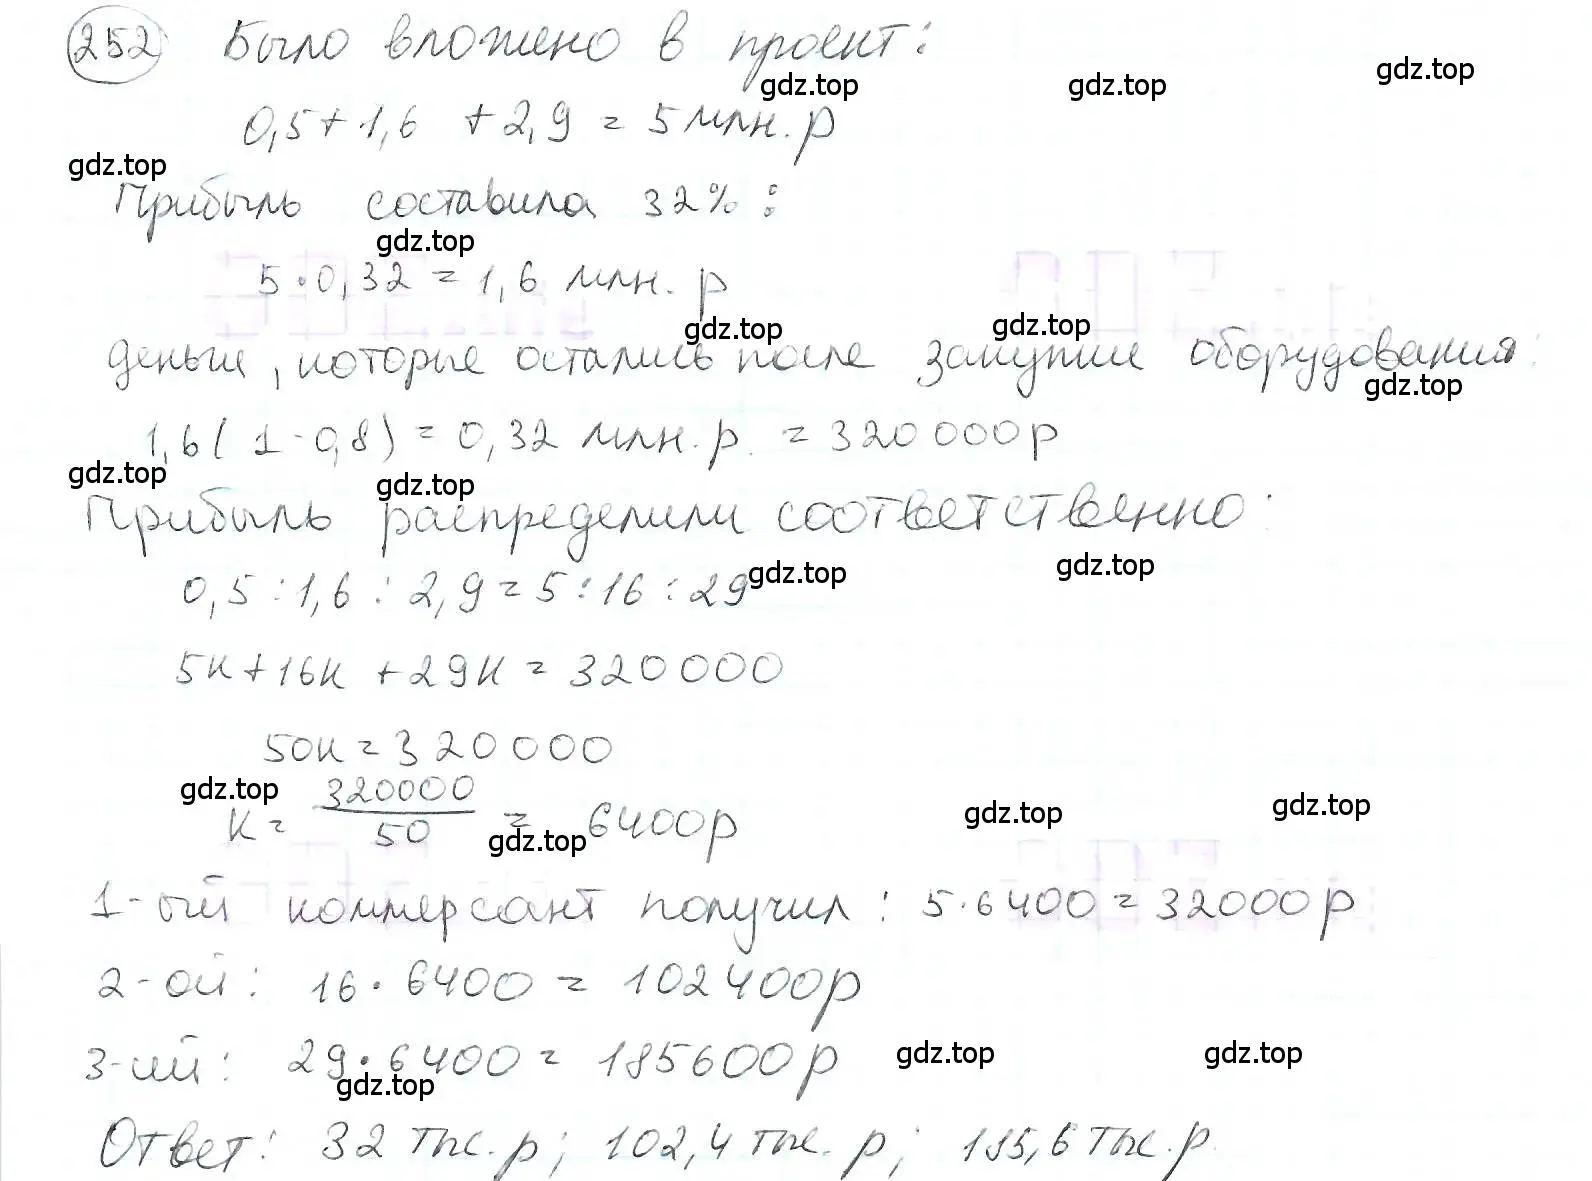 252 Было вложено в проект:
gdz.top gdz.top gdz.top
0,5+1,6 +2,9 = 5 млн. р
gdz.top
Прибыль составила 32%:
gdz.top
5·0,32 = 1,6 млн. р
gdz.top gdz.top
деньги, которые остались после закупки оборудования:
gdz.top
1,6(1-0,8) = 0,32 млн. р. = 320000р
gdz.top gdz.top
Прибыль распределили соответственно:
gdz.top gdz.top
0,5:1,6:2,9=5:16:29
5к+16к+29к = 320000
50к=320000
gdz.top gdz.top gdz.top
к= 320000/50 = 6400р
gdz.top
1-ый коммерсант получил: 5·6400=32000р
2-ой: 16·6400 = 102400р
3-ий: 29·6400= 185600р
gdz.top gdz.top gdz.top
Ответ: 32 тыс. р; 102,4 тыс. р; 185,6 тыс. р.